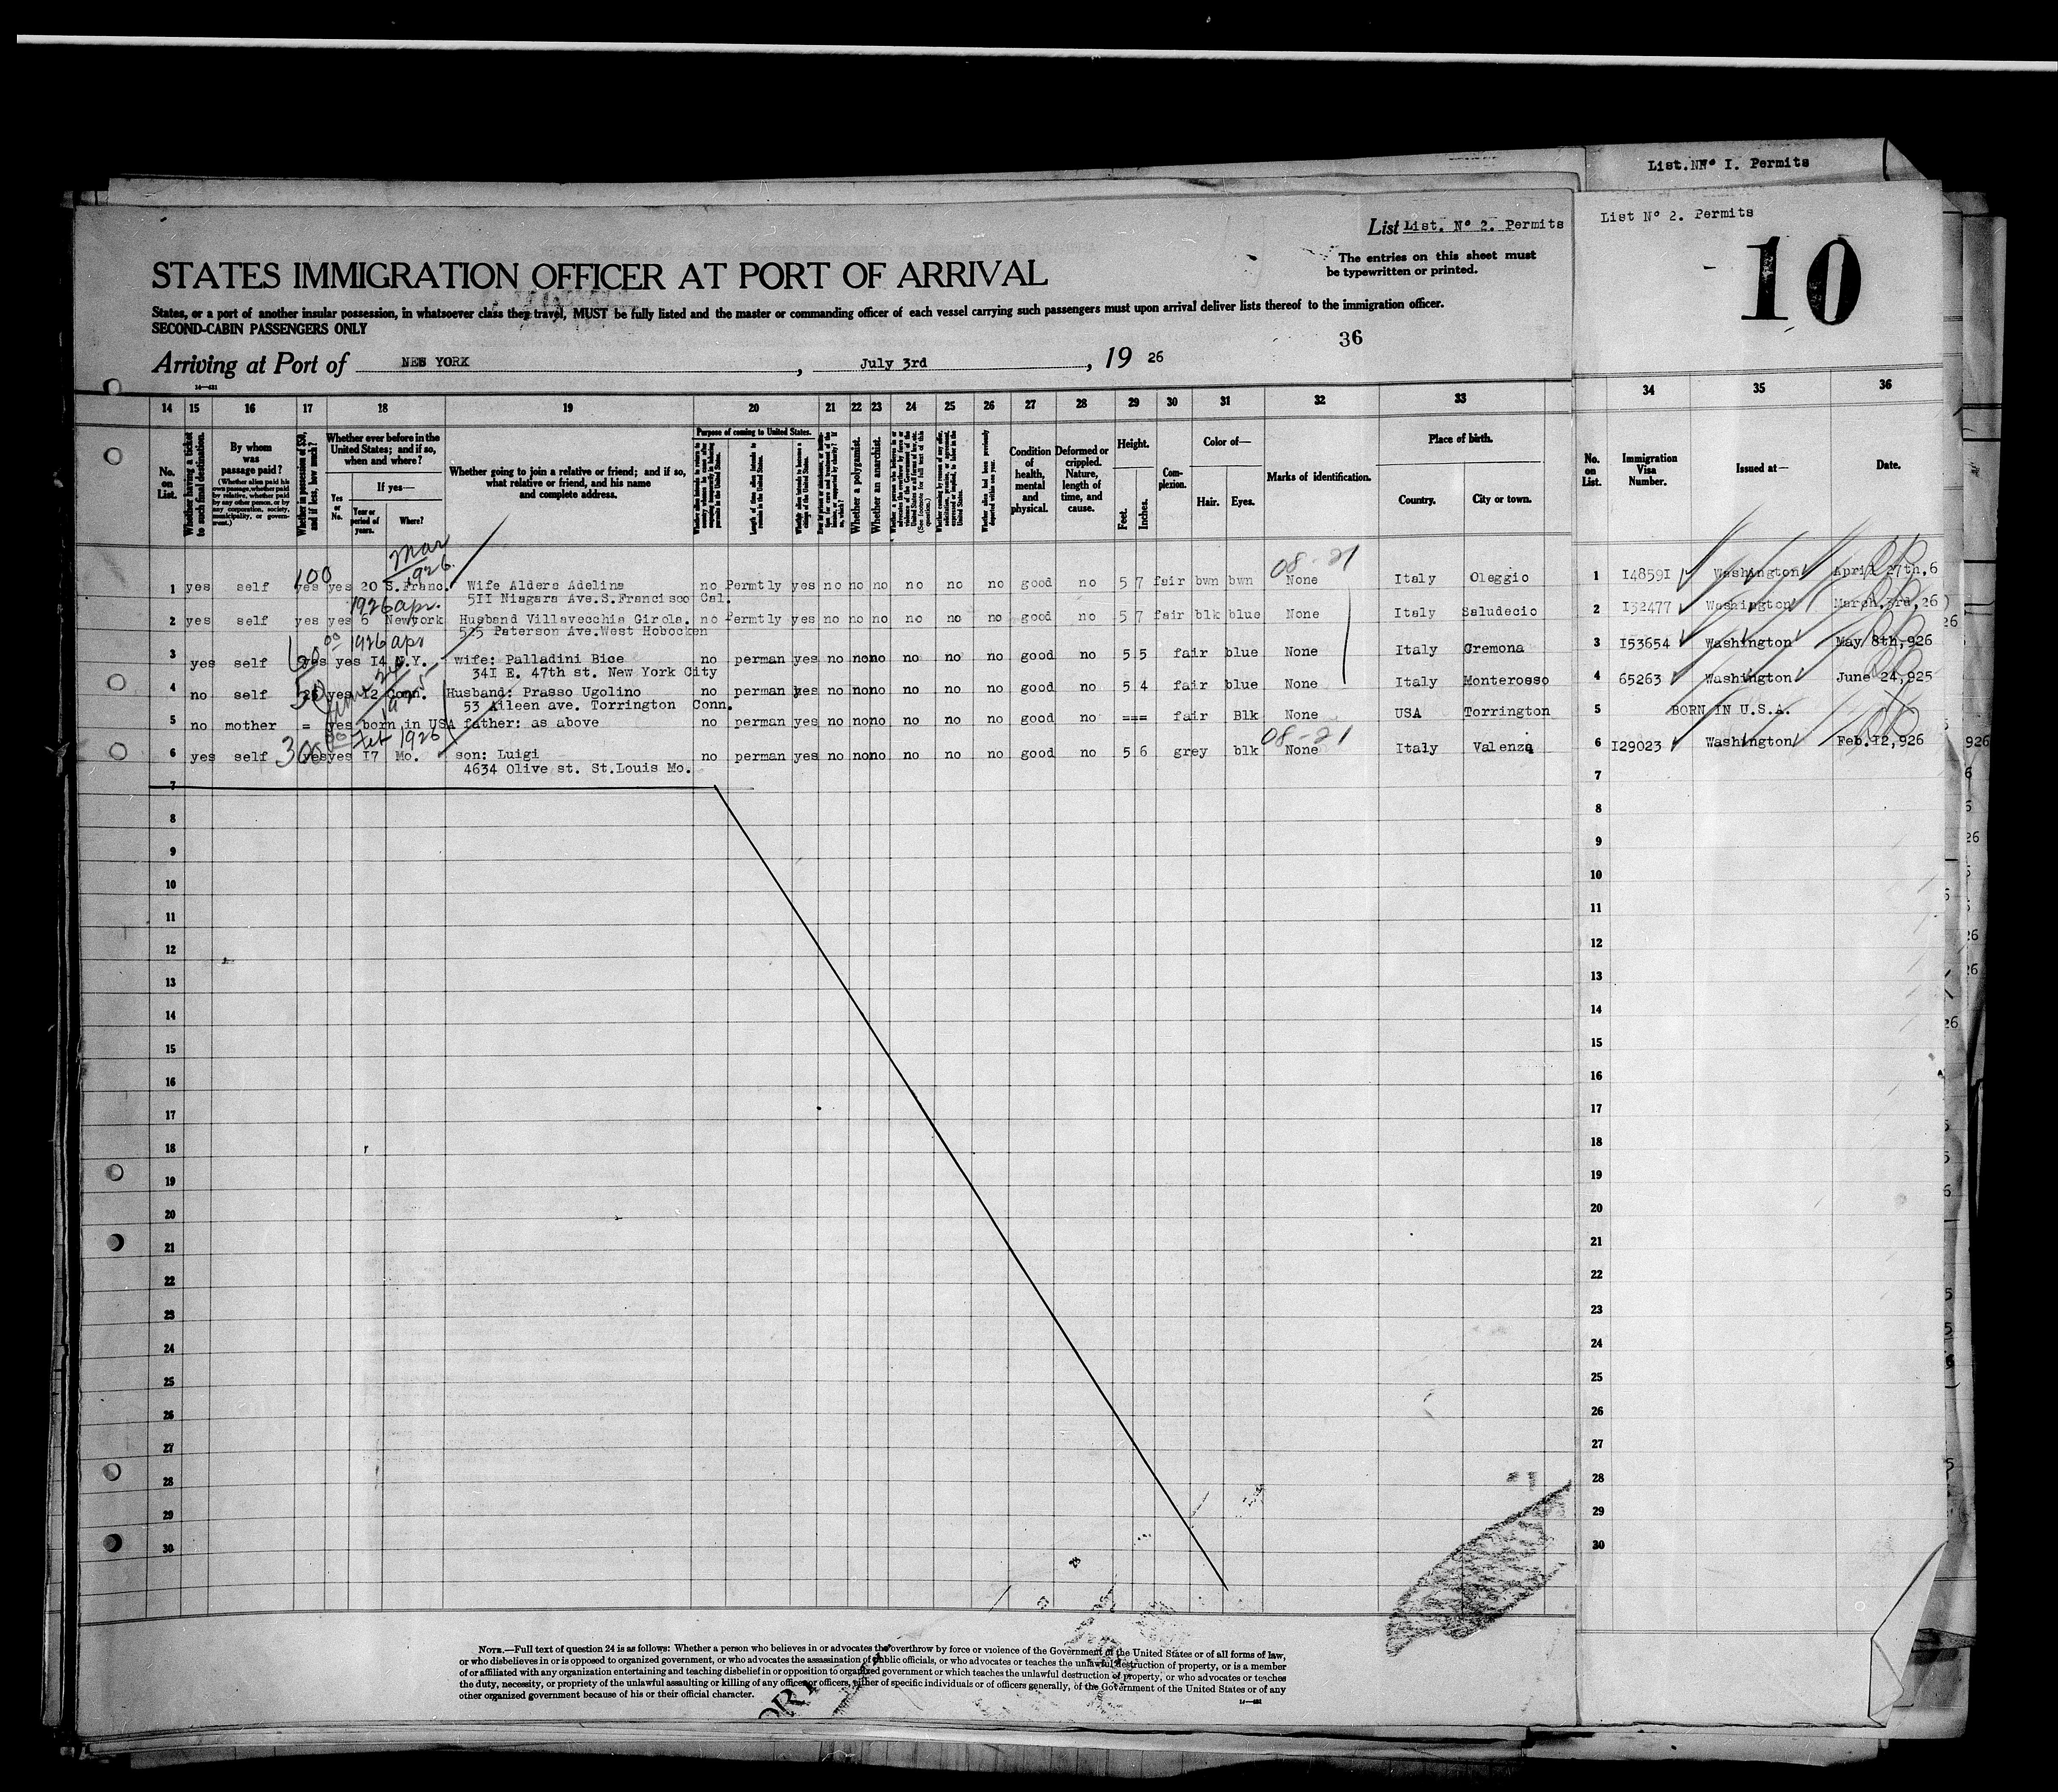 List. Nº I. Permits
List List. Nº 2. Permits
List Nº 2. Permits
10
The entries on this sheet must
be typewritten or printed.
STATES IMMIGRATION OFFICER AT PORT OF ARRIVAL
States, or a port of another insular possession, in whatsoever class they travel, MUST be fully listed and the master or commanding officer of each vessel carrying such passengers must upon arrival deliver lists thereof to the immigration officer.
SECOND-CABIN PASSENGERS ONLY
36
Arriving at Port of NEW YORK, July 3rd, 19 26
14 15 16 17 18 19 20 21 22 23 24 25 26 27 28 29 30 31 32 33 34 35 36
No. on List.
Whether having a ticket to such final destination.
By whom was passage paid?
(Whether alien paid his own passage, whether paid by relative, whether paid by any other person, or by any corporation, society, municipality, or government.)
Whether in possession of $50, and if less, how much?
Whether ever before in the United States; and if so, when and where?
Yes or No.
If yes—
Year or period of years.
Where?
Whether going to join a relative or friend; and if so, what relative or friend, and his name and complete address.
Purpose of coming to United States.
Length of time alien intends to remain in the United States.
Whether a polygamist.
Whether an anarchist.
Condition of health, mental and physical.
Deformed or crippled. Nature, length of time, and cause.
Height.
Feet.
Inches.
Complexion.
Color of—
Hair.
Eyes.
Marks of identification.
Place of birth.
Country.
City or town.
No. on List.
Immigration Visa Number.
Issued at—
Date.
Mar
1926.
100
08-21
1 yes self yes yes 20 S.Franc. Wife Aldera Adelina no Permtly yes no no no no no no good no 5 7 fair bwn bwn None Italy Oleggio 1 I4859I Washington April 27th,6
5II Niagara Ave.S.Francisco Cal.
1926 apr.
2 yes self yes yes 6 Newyork Husband Villavecchia Girola. no Permtly yes no no no no no no good no 5 7 fair blk blue None Italy Saludecio 2 I52477 Washington March.3rd,26
525 Paterson Ave.West Hobocken
1926 apr
3 yes self yes yes I4 N.Y. wife: Palladini Bice no perman yes no no no no no no good no 5 5 fair blue None Italy Cremona 3 I53654 Washington May 8th,926
34I E. 47th st. New York City
50
4 no self 25 yes I2 Conn. Husband: Prasso Ugolino no perman yes no no no no no no good no 5 4 fair blue None Italy Monterosso 4 65263 Washington June 24,925
53 Aileen ave. Torrington Conn.
5 no mother = yes born in USA father: as above no perman yes no no no no no no good no === fair Blk None USA Torrington 5 BORN IN U.S.A.
Feb 1926
300
08-21
6 yes self yes yes I7 Mo. son: Luigi no perman yes no no no no no no good no 5 6 grey blk None Italy Valenza 6 I29023 Washington Feb.I2,926
4634 Olive st. St.Louis Mo.
7 7
8 8
9 9
10 10
11 11
12 12
13 13
14 14
15 15
16 16
17 17
18 18
19 19
20 20
21 21
22 22
23 23
24 24
25 25
26 26
27 27
28 28
29 29
30 30
NOTE.—Full text of question 24 is as follows: Whether a person who believes in or advocates the overthrow by force or violence of the Government of the United States or of all forms of law,
or who disbelieves in or is opposed to organized government, or who advocates the assassination of public officials, or who advocates or teaches the unlawful destruction of property, or is a member
of or affiliated with any organization entertaining and teaching disbelief in or opposition to organized government or which teaches the unlawful destruction of property, or who advocates or teaches
the duty, necessity, or propriety of the unlawful assaulting or killing of any officer or officers, either of specific individuals or of officers generally, of the Government of the United States or of any
other organized government because of his or their official character.